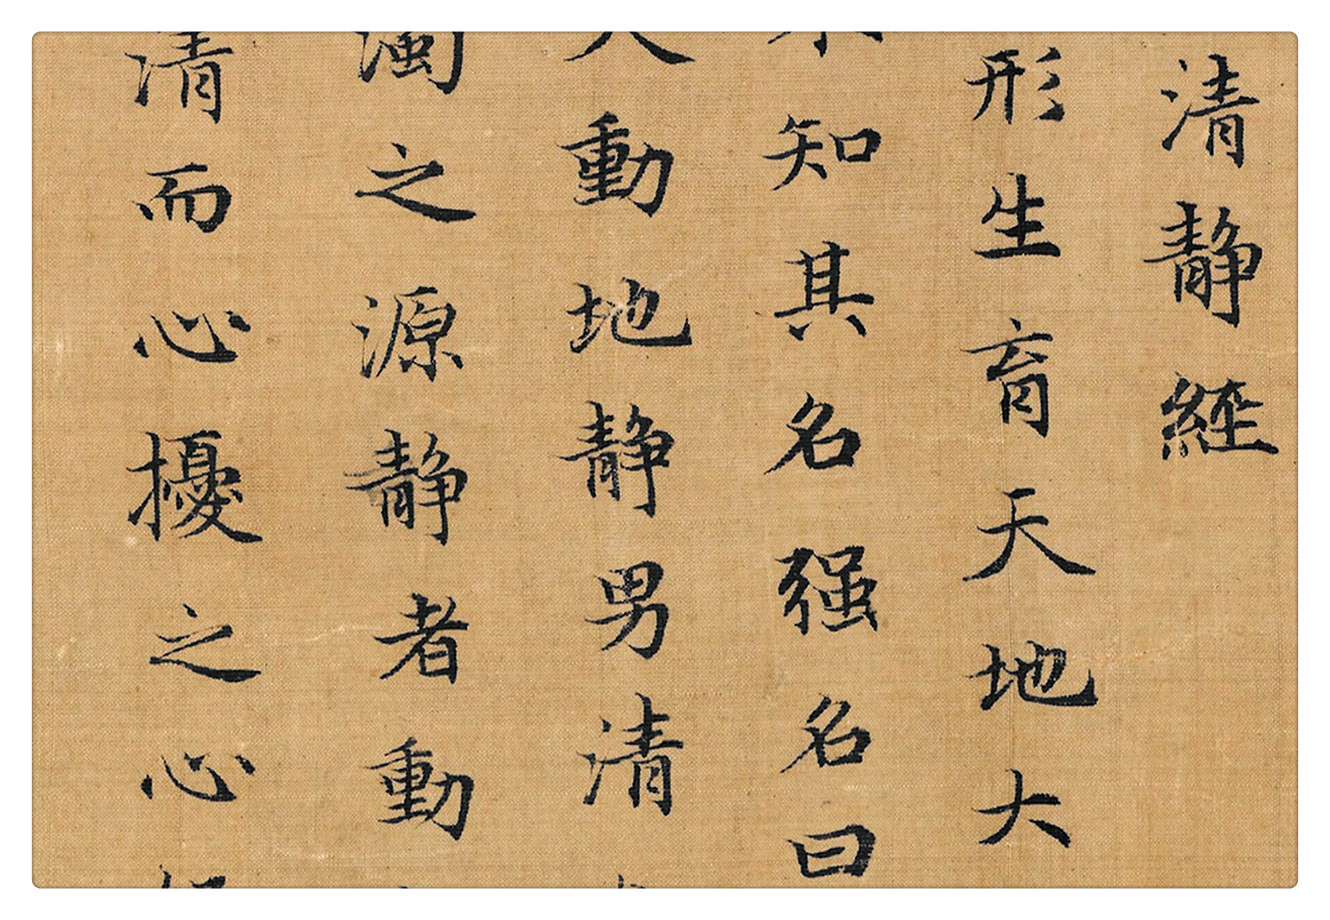 清静經
形生育天地大
不知其名强名曰
天動地静男清
濁之源静者動
清而心擾之心